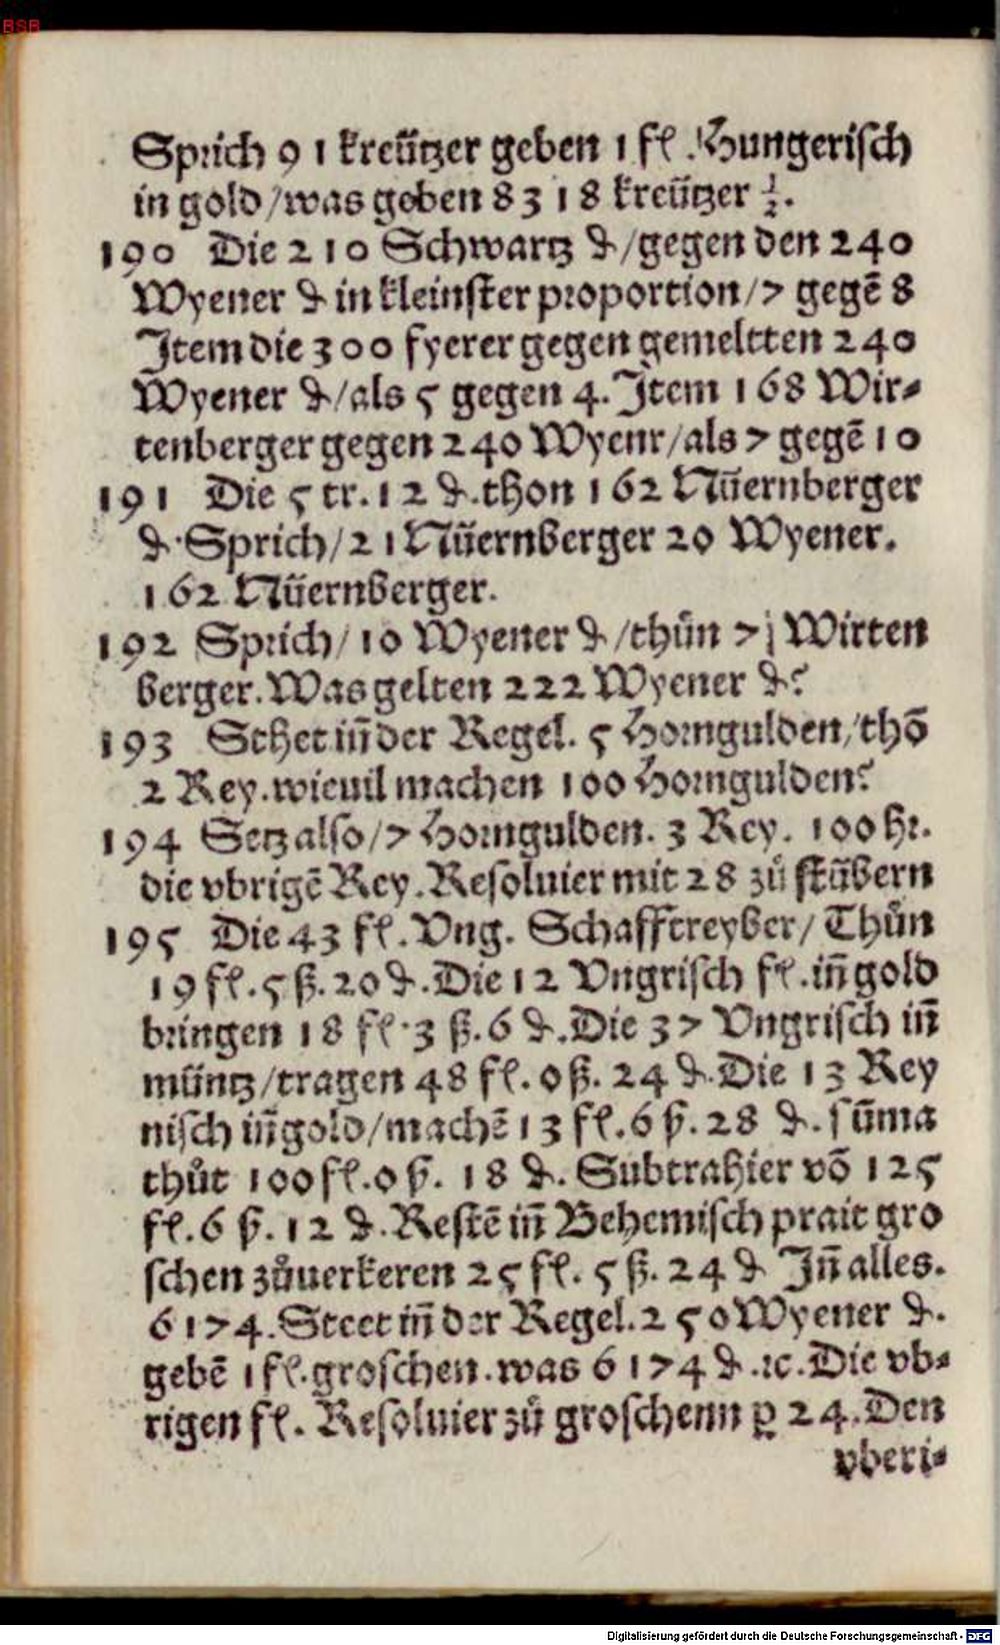 BSB
Sprich 91 kreützer geben 1 fl. Hungerisch
in gold/was geben 8318 kreützer ½.
190 Die 210 Schwartz ₰/gegen den 240
Wyener ₰ in kleinster proportion/7 gegē 8
Item die 300 fyerer gegen gemeltten 240
Wyener ₰/als 5 gegen 4. Item 168 Wir⸗
tenberger gegen 240 Wyenr/als 7 gegē 10
191 Die 5 tr. 12 ₰. thon 162 Nüernberger
₰. Sprich/21 Nüernberger 20 Wyener.
162 Nüernberger.
192 Sprich/10 Wyener ₰/thün 7 Wirten
berger. Was gelten 222 Wyener ₰?
193 Sthet iñ der Regel. 5 Horngulden/thō
2 Rey. wieuil machen 100 Horngulden?
194 Setz also/7 Horngulden. 3 Rey. 100 hr.
die vbrigē Rey. Resoluier mit 28 zů stübern
195 Die 43 fl. Vng. Schafftreyber/Thůn
19 fl. 5 ß. 20 ₰. Die 12 Vngrisch fl. iñ gold
bringen 18 fl. 3 ß. 6 ₰. Die 37 Vngrisch iñ
müntz/tragen 48 fl. 0 ß. 24 ₰. Die 13 Rey
nisch iñ gold/machē 13 fl. 6 ß. 28 ₰. sūma
thůt 100 fl. 0 ß. 18 ₰. Subtrahier vō 125
fl. 6 ß. 12 ₰. Restē iñ Behemisch prait gro
schen zůuerkeren 25 fl. 5 ß. 24 ₰ Iñ alles.
6174. Steet iñ der Regel. 250 Wyener ₰.
gebē 1 fl. groschen. was 6174 ₰. ꝛc. Die vb⸗
rigen fl. Resoluier zů groschenn ꝑ 24. Den
vberi⸗
Digitalisierung gefördert durch die Deutsche Forschungsgemeinschaft - DFG